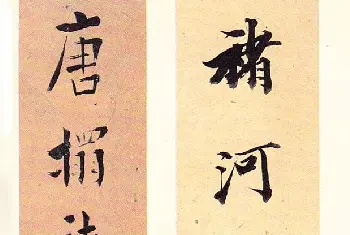 褚河
唐搨